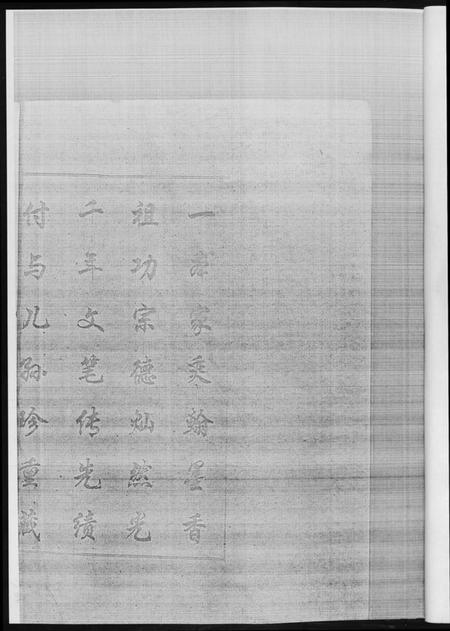 一本家乘翰墨香
祖功宗德灿然光
二年文笔传先绩
付与儿孙珍重藏